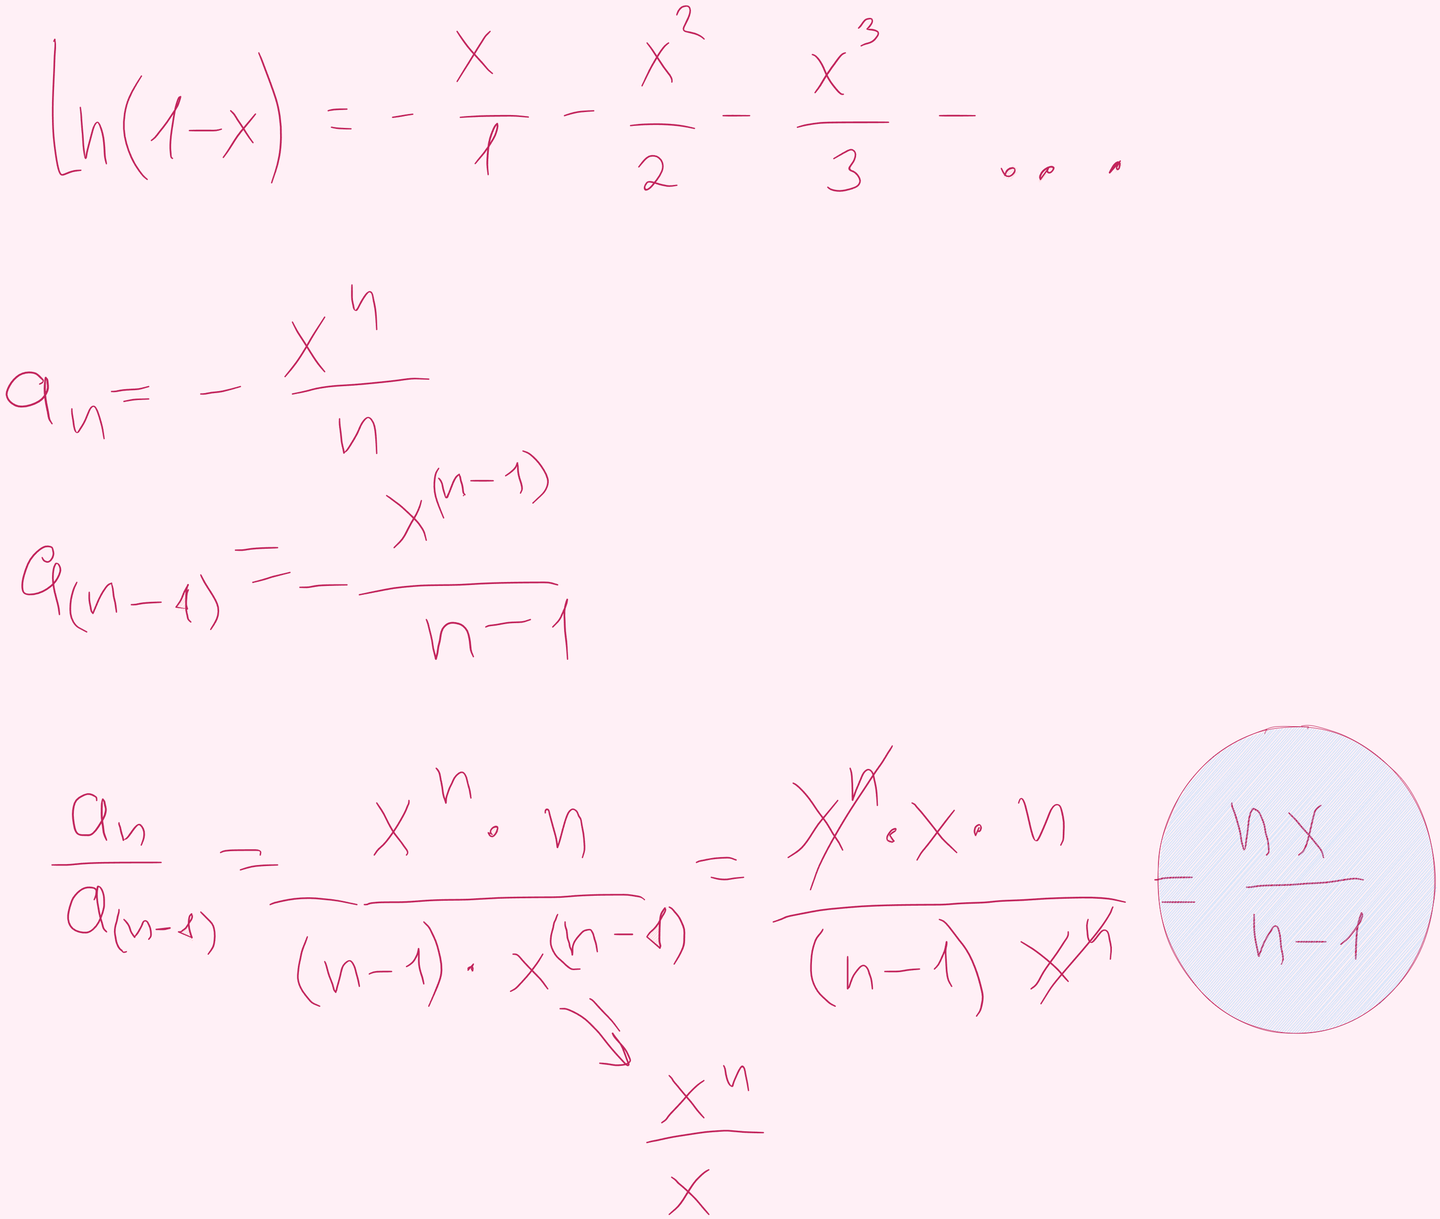 Ln(1-x) = - x/1 - x²/2 - x³/3 - ...
aₙ = - xⁿ/n
a₍ₙ₋₁₎ = - x⁽ⁿ⁻¹⁾/(n-1)
aₙ/a₍ₙ₋₁₎ = (xⁿ · n)/((n-1) · x⁽ⁿ⁻¹⁾) = (xⁿ · x · n)/((n-1) xⁿ) = nx/(n-1)
xⁿ/x